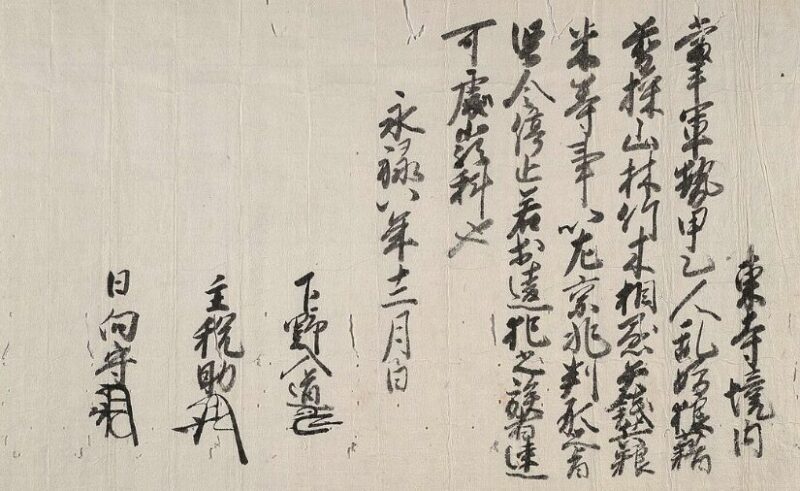 東寺境内
当手軍勢甲乙人乱妨狼藉
剪採山林竹木相懸矢銭兵粮
米等事以左京兆判形旨
堅令停止若於違犯之族者速
可處厳科也
永禄八年十二月日
下野入道
主税助
日向守